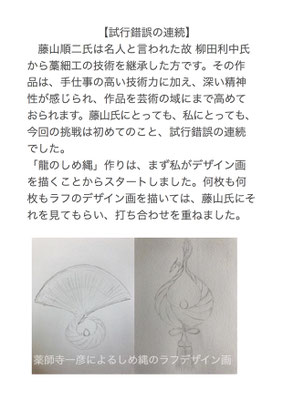 【試行錯誤の連続】
藤山順二氏は名人と言われた故 柳田利中氏
から藁細工の技術を継承した方です。その作
品は、手仕事の高い技術力に加え、深い精神
性が感じられ、作品を芸術の域にまで高めて
おられます。藤山氏にとっても、私にとっても、
今回の挑戦は初めてのこと、試行錯誤の連続
でした。
「龍のしめ縄」作りは、まず私がデザイン画
を描くことからスタートしました。何枚も何
枚もラフのデザイン画を描いては、藤山氏にそ
れを見てもらい、打ち合わせを重ねました。
薬師寺一彦によるしめ縄のラフデザイン画